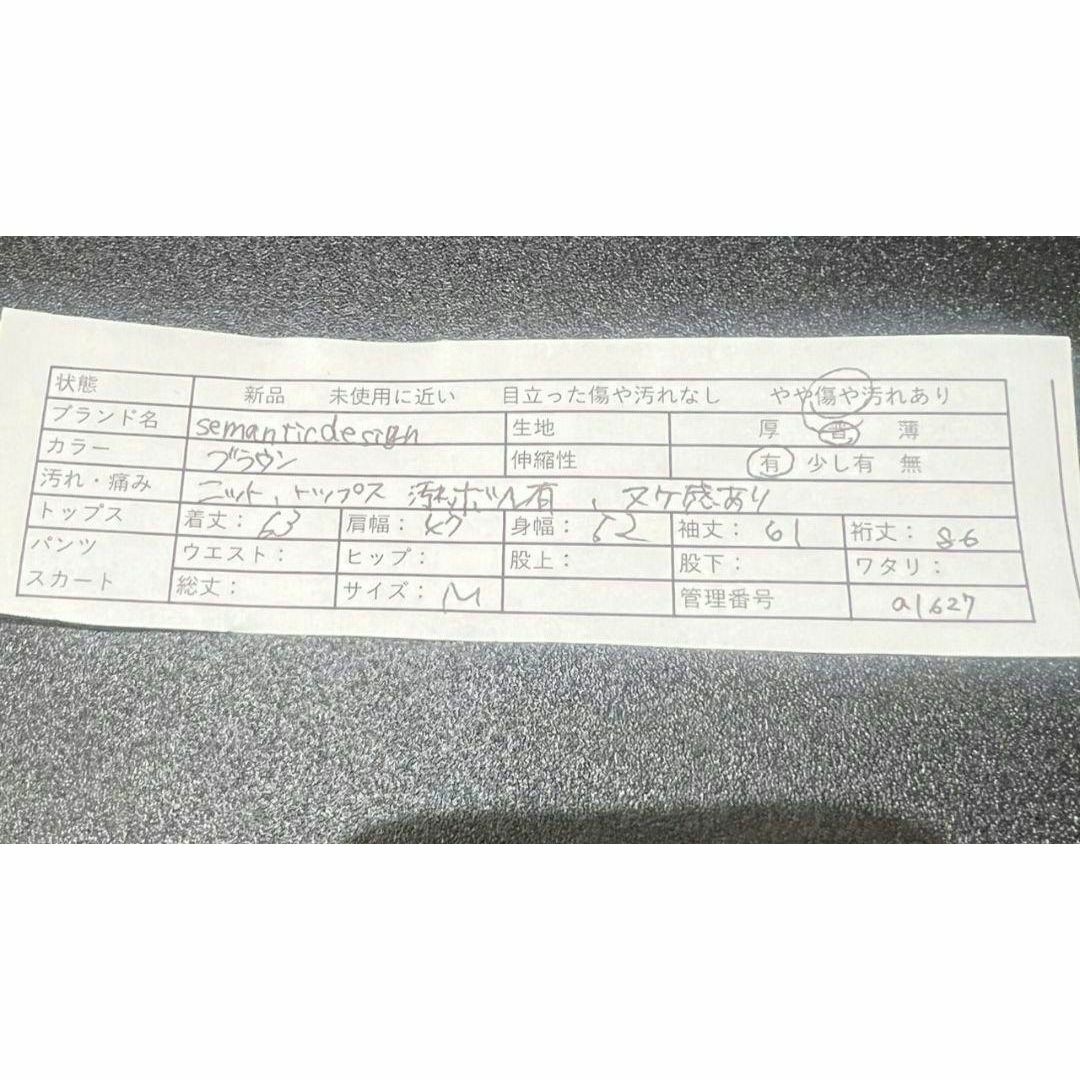 状態 新品 未使用に近い 目立った傷や汚れなし やや傷や汚れあり
ブランド名 semanticdesign 生地 厚 普 薄
カラー ブラウン 伸縮性 有 少し有 無
汚れ・痛み ニット、トップス 汚れ有、ヌケ感あり
トップス 着丈: 63 肩幅: 47 身幅: 52 袖丈: 61 裄丈: 86
パンツ スカート ウエスト: ヒップ: 股上: 股下: ワタリ:
総丈: サイズ: M 管理番号 a1627